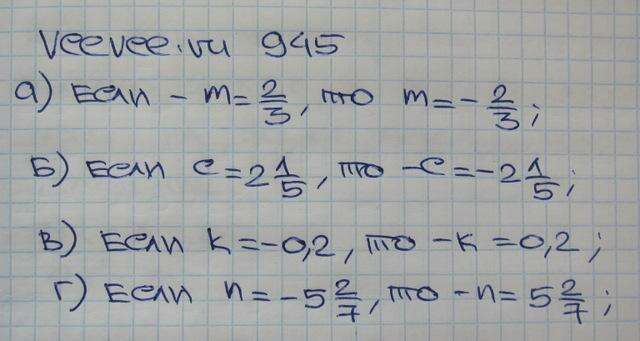 veevee.ru 945
а) Если - m = 2/3, то m = - 2/3;
Б) Если c = 2 1/5, то -c = -2 1/5;
в) Если k = -0,2, то -k = 0,2;
г) Если n = -5 2/7, то -n = 5 2/7;